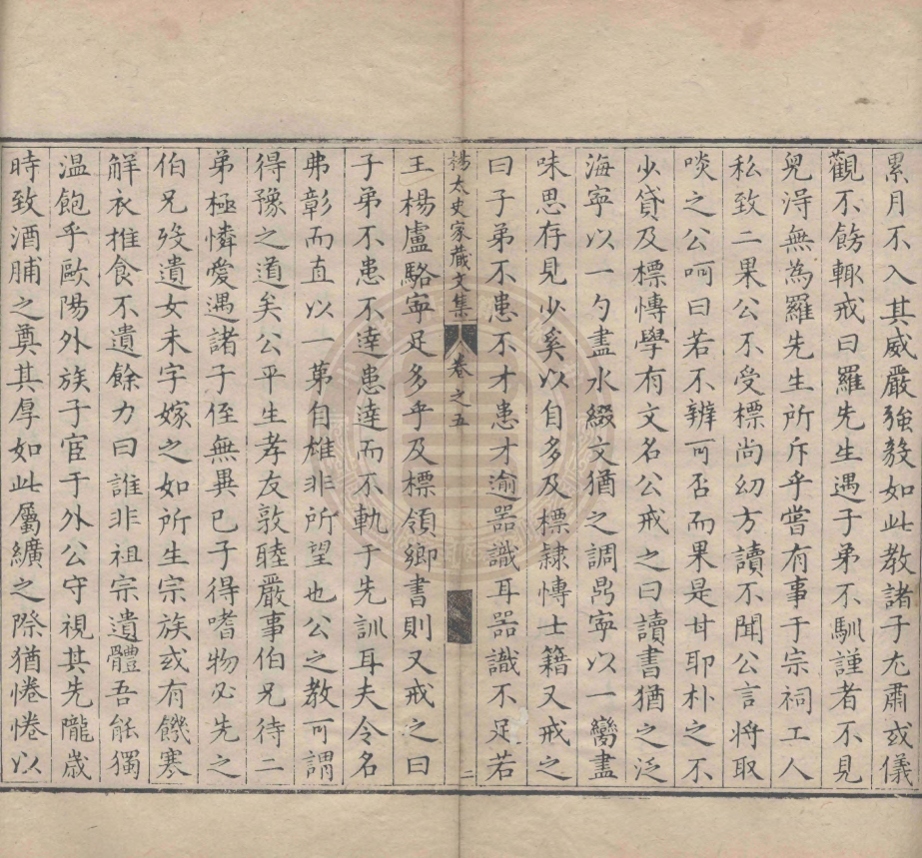 累月不入其威嚴強毅如此教諸子尤肅或儀
觀不飭輒戒曰羅先生遇子弟不馴謹者不見
兒淂無為羅先生所斥乎嘗有事于宗祠工人
私致二果公不受標尚幼方讀不聞公言將取
啖之公呵曰若不辨可否而果是甘耶朴之不
少貸及標愽學有文名公戒之曰讀書猶之泛
海寧以一勺盡水綴文猶之調鼎寧以一臠盡
味思存見少奚以自多及標隷愽士籍又戒之
曰子弟不患不才患才逾器識耳器識不足若
楊太史家藏文集 卷之五 二
王楊盧駱寧足多乎及標領鄉書則又戒之曰
子弟不患不達患達而不軌于先訓耳夫令名
弗彰而直以一第自雄非所望也公之教可謂
得豫之道矣公平生孝友敦睦嚴事伯兄待二
弟極憐愛遇諸子侄無異已子得嗜物必先之
伯兄歿遺女未字嫁之如所生宗族或有饑寒
解衣推食不遺餘力曰誰非祖宗遺體吾能獨
温飽乎歐陽外族子宦于外公守視其先隴歲
時致酒脯之奠其厚如此屬纊之際猶惓惓以